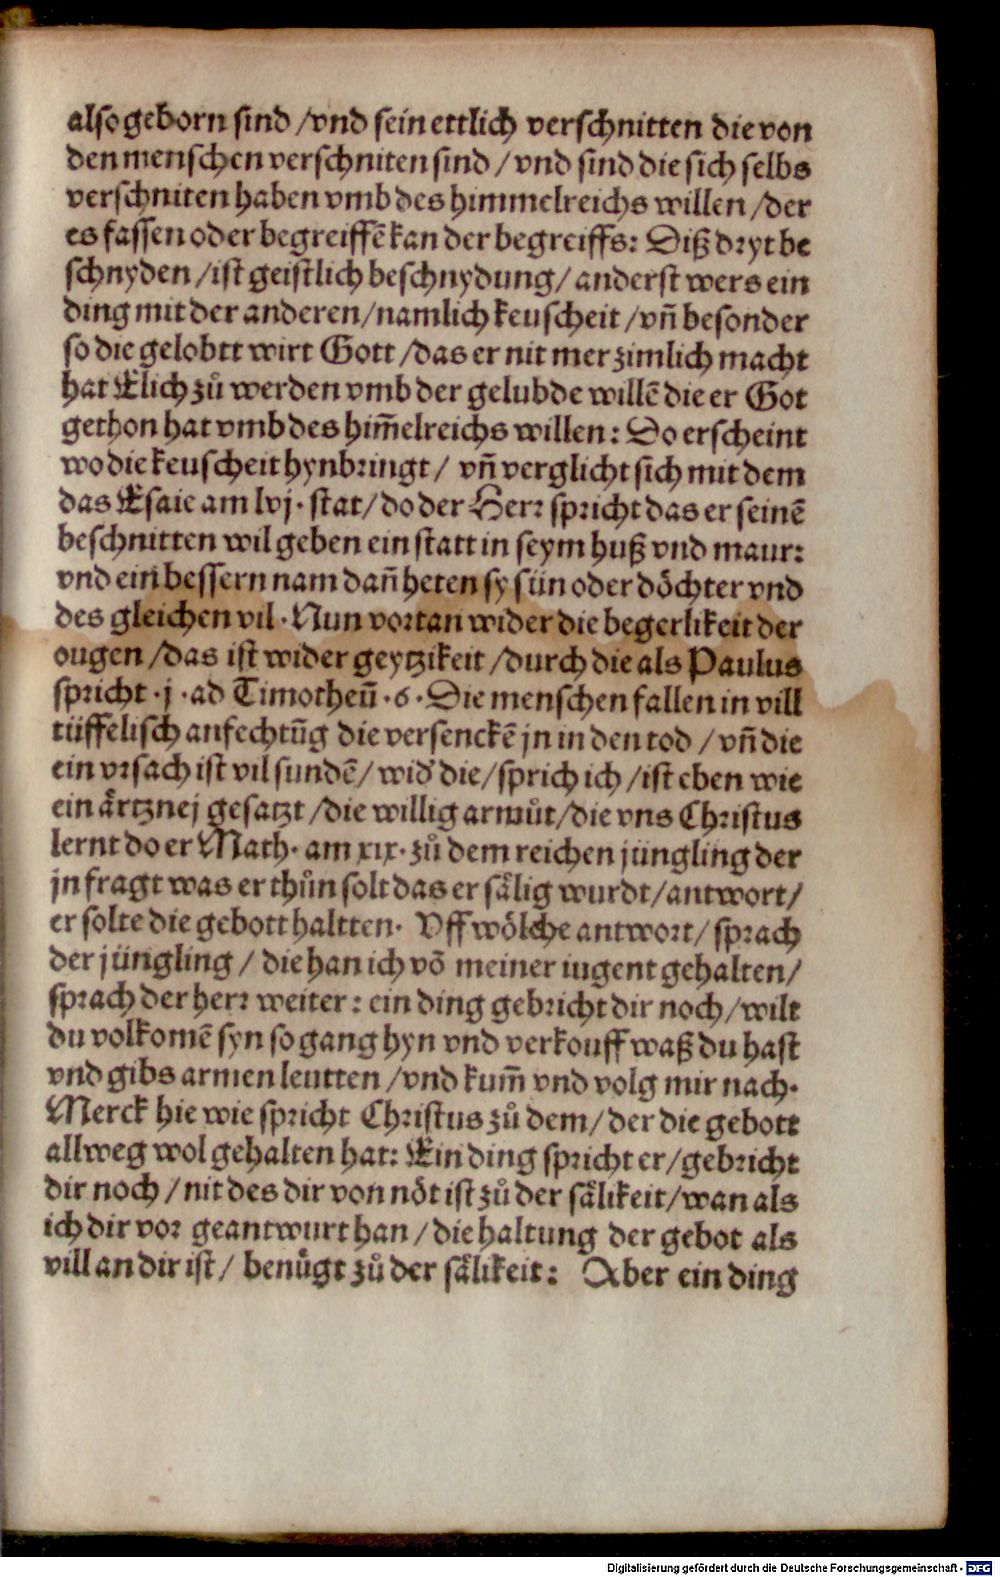 also geborn sind /vnd sein ettlich verschnitten die von
den menschen verschniten sind /vnd sind die sich selbs
verschniten haben vmb des himmelreichs willen /der
es fassen oder begreiffē kan der begreiffs: Diß dryt be
schnyden /ist geistlich beschnydung/ anderst wers ein
ding mit der anderen/namlich keuscheit /vn̄ besonder
so die gelobtt wirt Gott /das er nit mer zimlich macht
hat Elich zů werden vmb der gelubde willē die er Got
gethon hat vmb des him̄elreichs willen: Do erscheint
wo die keuscheit hynbringt/ vn̄ verglicht sich mit dem
das Esaie am lvj· stat/do der Herr spricht das er seinē
beschnitten wil geben ein statt in seym huß vnd maur:
vnd ein bessern nam dan̄ heten sy sün oder döchter vnd
des gleichen vil · Nun vortan wider die begerlikeit der
ougen /das ist wider geytzikeit /durch die als Paulus
spricht · j · ad Timotheū · 6 · Die menschen fallen in vill
tüffelisch anfechtūg die versenckē jn in den tod /vn̄ die
ein vrsach ist vil sundē/ wid̓ die/sprich ich /ist eben wie
ein ärtznej gesatzt /die willig armůt/die vns Christus
lernt do er Math· am xix· zů dem reichen jüngling der
jn fragt was er thůn solt das er sälig wurdt/antwort/
er solte die gebott haltten· Vff wölche antwort/ sprach
der jüngling / die han ich vō meiner iugent gehalten/
sprach der herr weiter: ein ding gebricht dir noch/wilt
du volkomē syn so gang hyn vnd verkouff waß du hast
vnd gibs armen leutten /vnd kum̄ vnd volg mir nach·
Merck hie wie spricht Christus zů dem/der die gebott
allweg wol gehalten hat: Ein ding spricht er/gebricht
dir noch /nit des dir von nöt ist zů der sälikeit/wan als
ich dir vor geantwurt han /die haltung der gebot als
vill an dir ist/ benügt zů der sälikeit: Aber ein ding
Digitalisierung gefördert durch die Deutsche Forschungsgemeinschaft - DFG